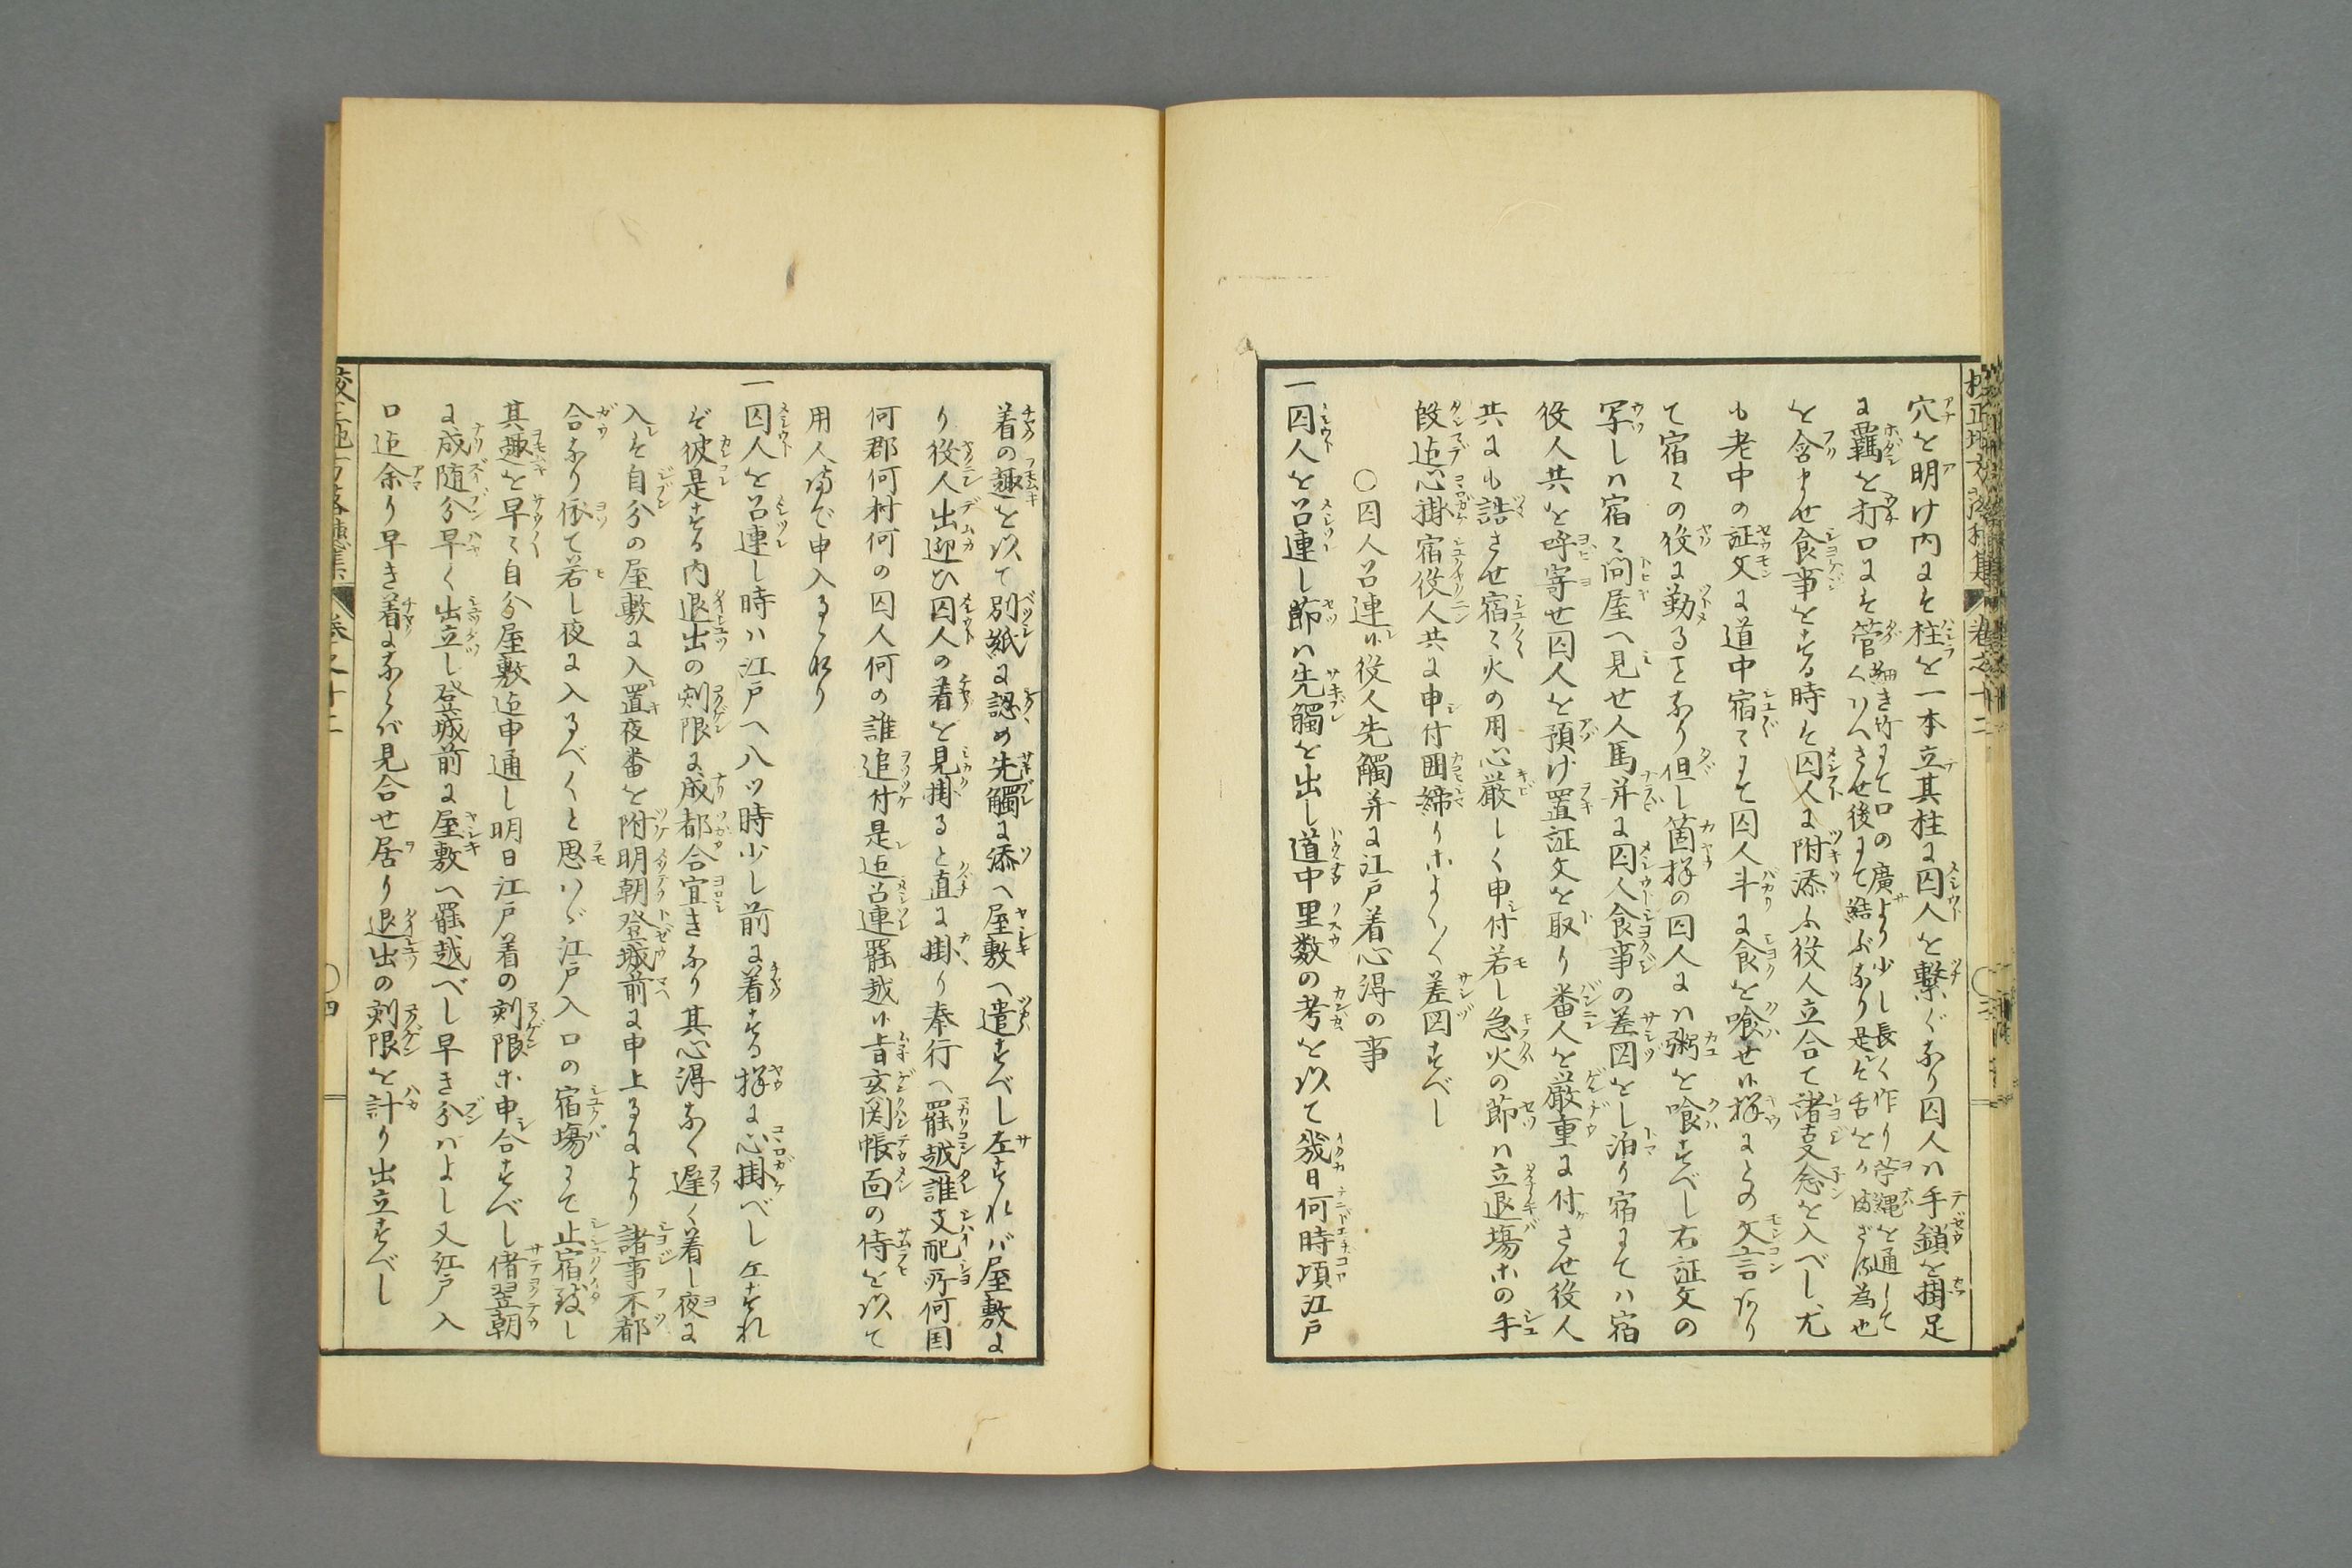 穴を明け内にて柱を一本立其柱に囚人を繋ぐなり囚人ハ手鎖を掛足
に覊を打口にて管細き竹にて口の廣より少し長く作り苧縄を通して
くわへさせ後にて結ぶなり是ハ舌をかませざる為也
を含ませ食事をする時ハ囚人に附添ふ役人立合て諸事念を入べし尤
も老中の証文に道中宿々にて囚人斗に食を喰せ候様にとの文言あり
て宿々の役に勤ることなり但し箇様の囚人にハ粥を喰すべし右証文の
写しハ宿々問屋へ見せ人馬并に囚人食事の差図をし泊り宿にてハ宿
役人共を呼寄せ囚人を預け置証文を取り番人を厳重に付させ役人
共にも詰させ宿々火の用心厳しく申付若し急火の節ハ立退場等の手
段迄心掛宿役人共に申付囲締り等よく〱差図すべし
○囚人召連候役人先觸并に江戸着心得の事
一囚人を召連し節ハ先觸を出し道中里数の考を以て幾日何時頃江戸
校正地方落穂集 巻之十二 ○三
着の趣を以て別紙に認め先觸に添へ屋敷へ遣すべし左すれバ屋敷よ
り役人出迎ひ囚人の着を見掛ると直に掛り奉行へ罷越誰支配所何国
何郡何村何の囚人何の誰追付是迄召連罷越候旨玄関帳面の侍を以て
用人迄申入るゝなり
一囚人を召連し時ハ江戸へ八ッ時少し前に着する様に心掛べし左すれ
ば彼是する内退出の刻限に成都合宜きなり其心得なく遅く着し夜に
入てハ自分の屋敷に入置夜番を附明朝登城前に申上るにより諸事不都
合なり依て若し夜に入るべくと思ハゞ江戸入口の宿場にて止宿致し
其趣を早々自分屋敷迄申通し明日江戸着の刻限等申合すべし偖翌朝
に成随分早く出立し登城前に屋敷へ罷越べし早き分ハよし又江戸入
口迄余り早き着ならバ見合せ居り退出の刻限を計り出立すべし
校正地方落穂集 巻之十二 ○四